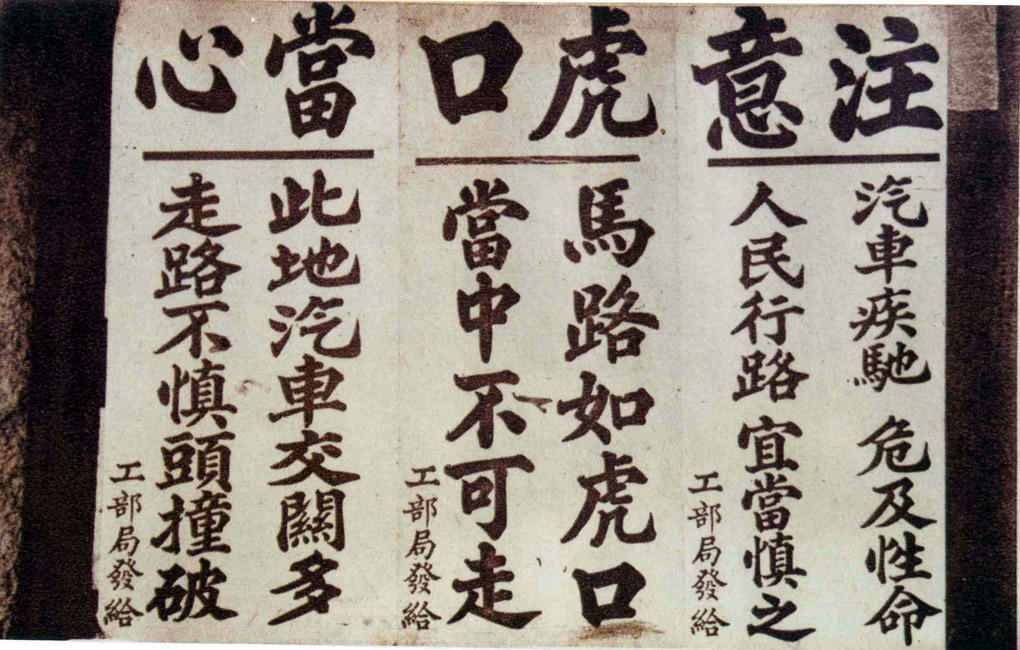 注意
汽車疾馳 危及性命
人民行路 宜當慎之
工部局發給
虎口
馬路如虎口
當中不可走
工部局發給
當心
此地汽車交關多
走路不慎頭撞破
工部局發給